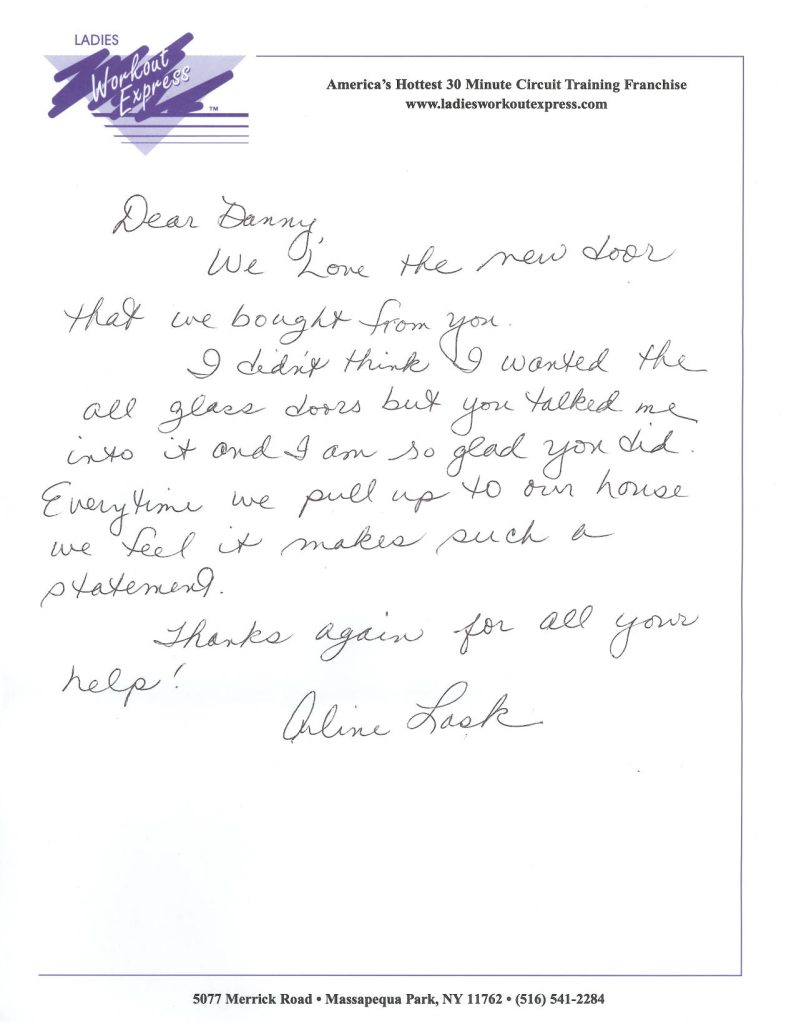 LADIES
Workout
Express
TM
America's Hottest 30 Minute Circuit Training Franchise
www.ladiesworkoutexpress.com
Dear Danny,
We Love the new door
that we bought from you.
I didn't think I wanted the
all glass doors but you talked me
into it and I am so glad you did.
Everytime we pull up to our house
we feel it makes such a
statement.
Thanks again for all your
help!
Arline Lask
5077 Merrick Road • Massapequa Park, NY 11762 • (516) 541-2284